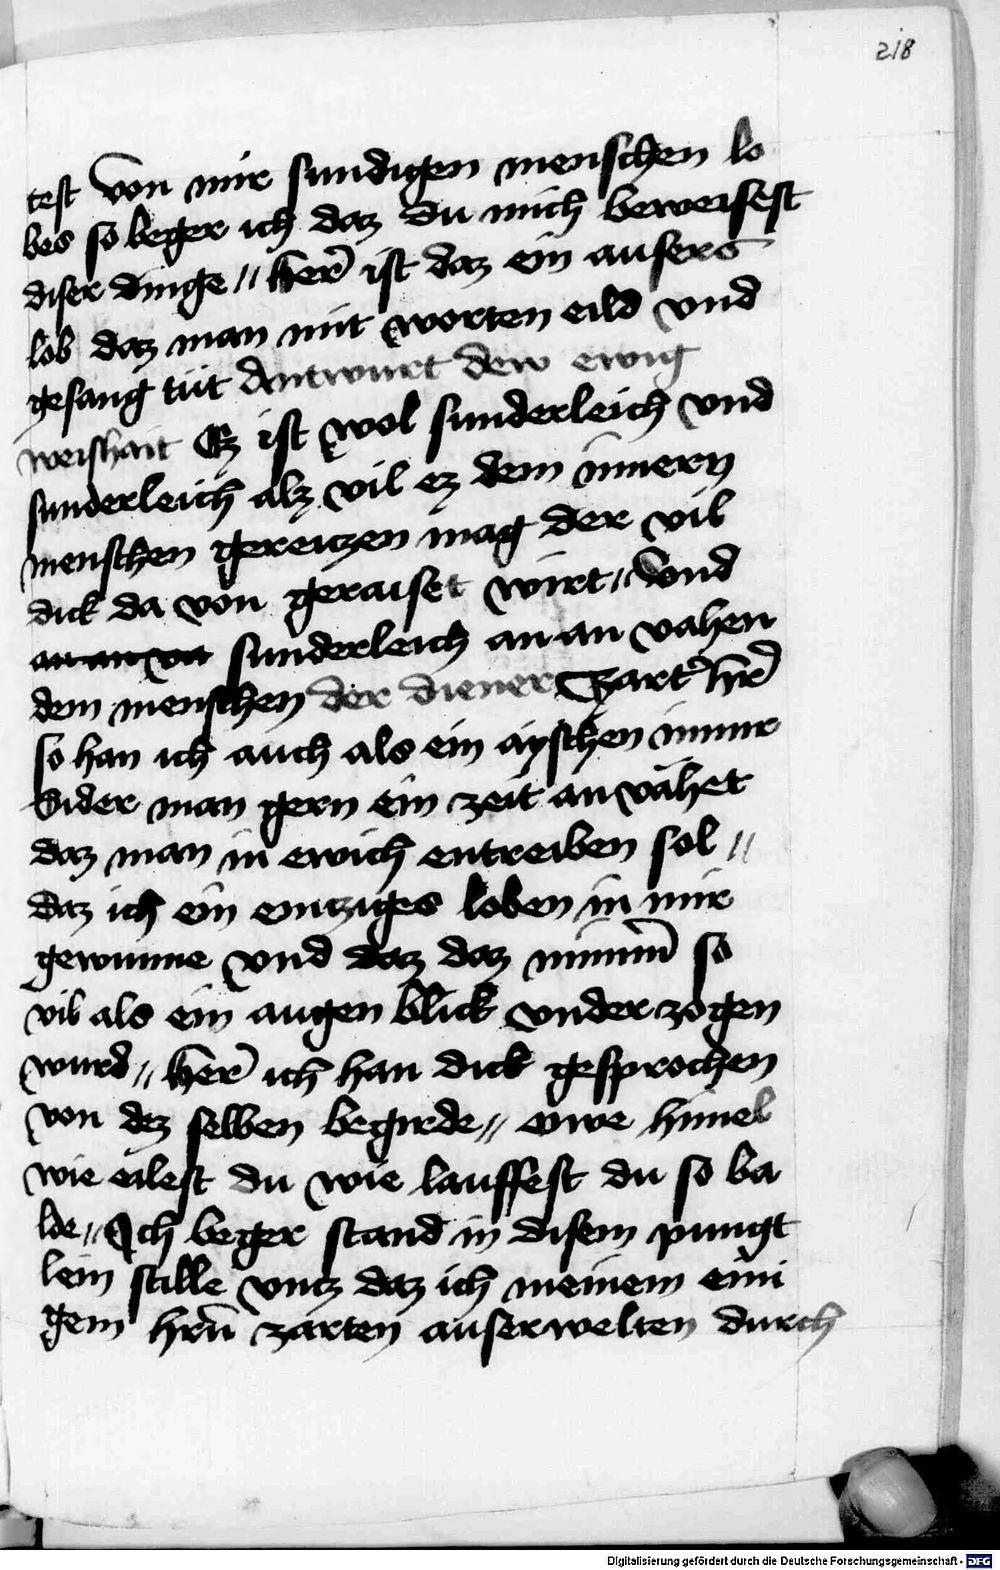 218
test von mir sundigen menschen lo
bes so beger ich daz du mich beweisest
diser dinge // her̄ ist daz ein aufers
lob daz man mit worten eild vnd
gesang tüt Antwurt dew ewig
weishait Ez ist wol sunderleich vnd
sunderleich alz vil ez dem innern
menschen gereitzen mag der vil
dick da von geraiset wirt // Vnd
an an va sunderleich an an vahen
dem menschen der diener Zarter hr̄
so han ich auch als ein ayschen immr
Sider man gern ein zeit an vähet
daz man in ewich entreiben sol //
daz ich ein eintziges loben in mir
gewunne vnd daz daz nimm̄ so
vil als ein augen blick vnder zogen
wurd // her̄ ich han dick gesprochen
von dez selben begirde // owe himel
wie eilest du wie lauffest du so ba
lde // Ich beger stand in disem pungt
lein stille vntz daz ich meinem eini
gem hrn̄ zarten auserwelten durch
Digitalisierung gefördert durch die Deutsche Forschungsgemeinschaft - DFG